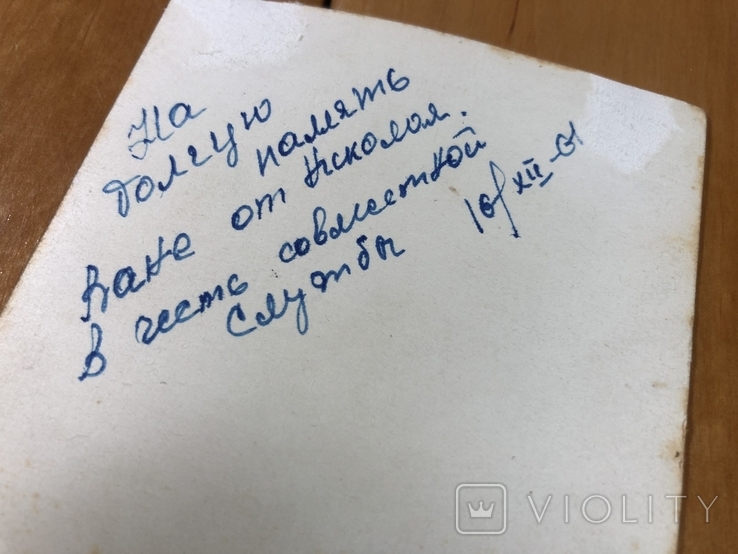 На
долгую
память
Ване от Николая.
В честь совместной
службы 10/XII-61
VIOLITY